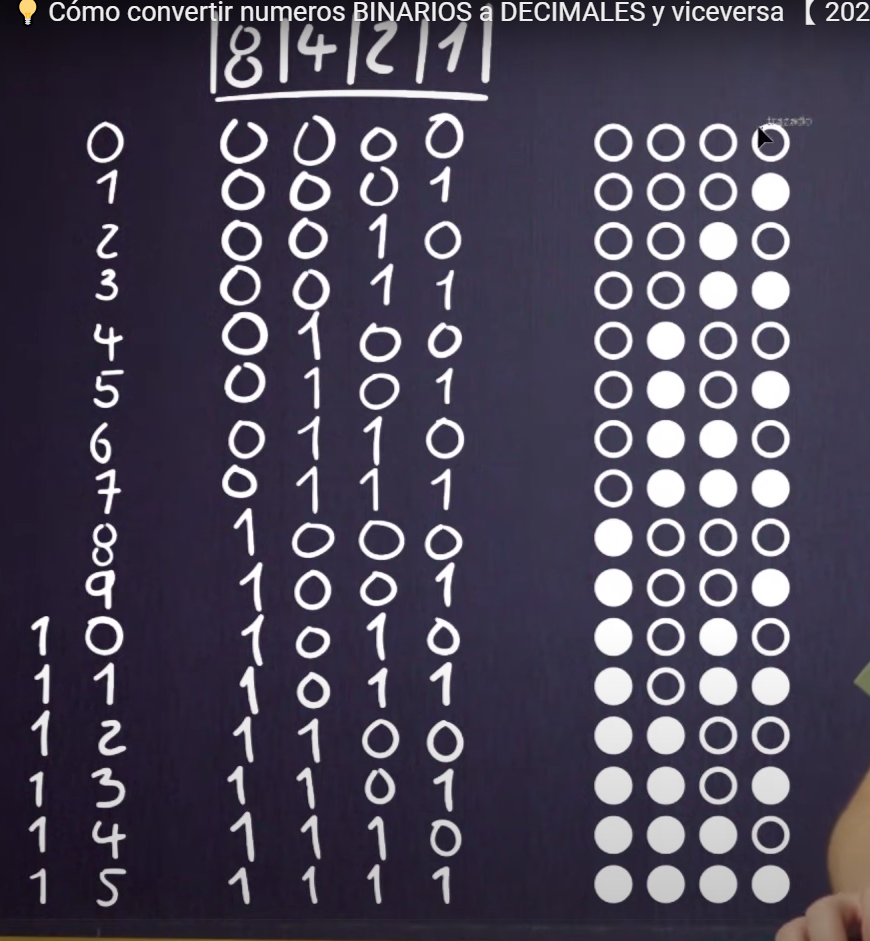 Cómo convertir numeros BINARIOS a DECIMALES y viceversa 【 202
|8|4|2|1|
trazado
0 0 0 0 0
1 0 0 0 1
2 0 0 1 0
3 0 0 1 1
4 0 1 0 0
5 0 1 0 1
6 0 1 1 0
7 0 1 1 1
8 1 0 0 0
9 1 0 0 1
1 0 1 0 1 0
1 1 1 0 1 1
1 2 1 1 0 0
1 3 1 1 0 1
1 4 1 1 1 0
1 5 1 1 1 1